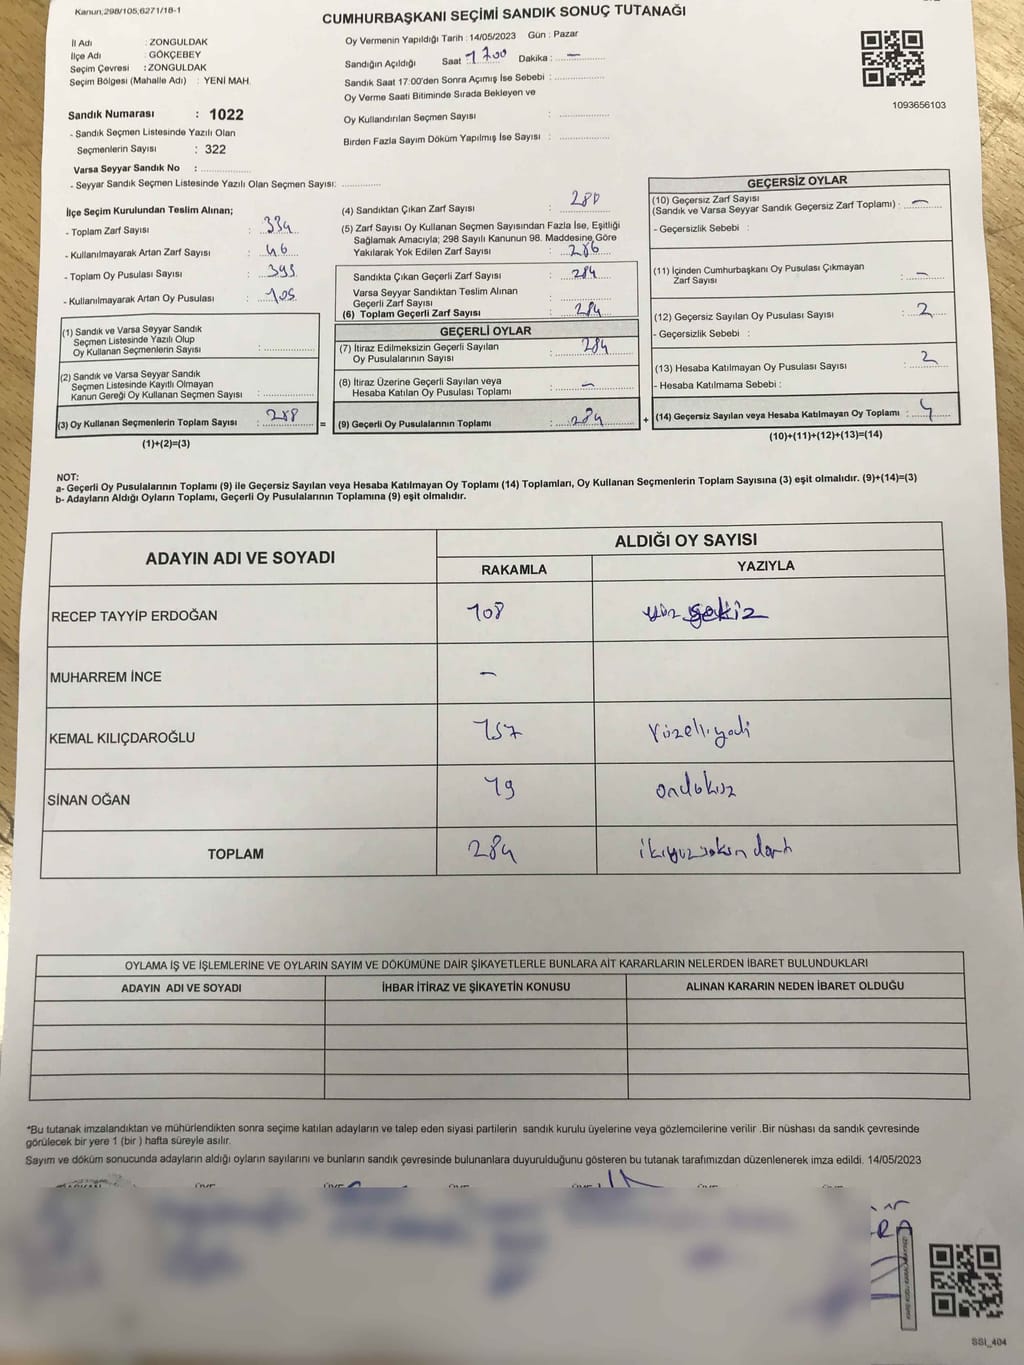 Kanun;298/105,6271/18-1
CUMHURBAŞKANI SEÇİMİ SANDIK SONUÇ TUTANAĞI
İl Adı : ZONGULDAK
İlçe Adı : GÖKÇEBEY
Seçim Çevresi : ZONGULDAK
Seçim Bölgesi (Mahalle Adı) : YENİ MAH.
Sandık Numarası : 1022
- Sandık Seçmen Listesinde Yazılı Olan
Seçmenlerin Sayısı : 322
Varsa Seyyar Sandık No : ..............
- Seyyar Sandık Seçmen Listesinde Yazılı Olan Seçmen Sayısı: ..............
Oy Vermenin Yapıldığı Tarih : 14/05/2023 Gün : Pazar
Sandığın Açıldığı Saat : 1700 Dakika : —
Sandık Saat 17:00'den Sonra Açımış İse Sebebi : ..............
Oy Verme Saati Bitiminde Sırada Bekleyen ve
Oy Kullandırılan Seçmen Sayısı : ..............
Birden Fazla Sayım Döküm Yapılmış İse Sayısı : ..............
1093656103
İlçe Seçim Kurulundan Teslim Alınan;
- Toplam Zarf Sayısı : 334
- Kullanılmayarak Artan Zarf Sayısı : 46
- Toplam Oy Pusulası Sayısı : 393
- Kullanılmayarak Artan Oy Pusulası : 105
(1) Sandık ve Varsa Seyyar Sandık
Seçmen Listesinde Yazılı Olup
Oy Kullanan Seçmenlerin Sayısı : ..............
(2) Sandık ve Varsa Seyyar Sandık
Seçmen Listesinde Kayıtlı Olmayan
Kanun Gereği Oy Kullanan Seçmen Sayısı : ..............
(3) Oy Kullanan Seçmenlerin Toplam Sayısı : 288 =
(1)+(2)=(3)
(4) Sandıktan Çıkan Zarf Sayısı :
(5) Zarf Sayısı Oy Kullanan Seçmen Sayısından Fazla İse, Eşitliği
Sağlamak Amacıyla; 298 Sayılı Kanunun 98. Maddesine Göre
Yakılarak Yok Edilen Zarf Sayısı : 286
Sandıkta Çıkan Geçerli Zarf Sayısı : 284
Varsa Seyyar Sandıktan Teslim Alınan
Geçerli Zarf Sayısı : ..............
(6) Toplam Geçerli Zarf Sayısı : 284
GEÇERLİ OYLAR
(7) İtiraz Edilmeksizin Geçerli Sayılan
Oy Pusulalarının Sayısı : 284
(8) İtiraz Üzerine Geçerli Sayılan veya
Hesaba Katılan Oy Pusulası Toplamı : —
(9) Geçerli Oy Pusulalarının Toplamı : 284 +
GEÇERSİZ OYLAR
(10) Geçersiz Zarf Sayısı
(Sandık ve Varsa Seyyar Sandık Geçersiz Zarf Toplamı) : —
- Geçersizlik Sebebi :
(11) İçinden Cumhurbaşkanı Oy Pusulası Çıkmayan
Zarf Sayısı : —
(12) Geçersiz Sayılan Oy Pusulası Sayısı : 2
- Geçersizlik Sebebi :
(13) Hesaba Katılmayan Oy Pusulası Sayısı : 2
- Hesaba Katılmama Sebebi :
(14) Geçersiz Sayılan veya Hesaba Katılmayan Oy Toplamı : 4
(10)+(11)+(12)+(13)=(14)
NOT:
a- Geçerli Oy Pusulalarının Toplamı (9) ile Geçersiz Sayılan veya Hesaba Katılmayan Oy Toplamı (14) Toplamları, Oy Kullanan Seçmenlerin Toplam Sayısına (3) eşit olmalıdır. (9)+(14)=(3)
b- Adayların Aldığı Oyların Toplamı, Geçerli Oy Pusulalarının Toplamına (9) eşit olmalıdır.
ADAYIN ADI VE SOYADI
ALDIĞI OY SAYISI
RAKAMLA YAZIYLA
RECEP TAYYİP ERDOĞAN 108 yüz sekiz
MUHARREM İNCE —
KEMAL KILIÇDAROĞLU 157 Yüzelliyedi
SİNAN OĞAN 19 ondokuz
TOPLAM 284 ikiyüzseksen dört
OYLAMA İŞ VE İŞLEMLERİNE VE OYLARIN SAYIM VE DÖKÜMÜNE DAİR ŞİKAYETLERLE BUNLARA AİT KARARLARIN NELERDEN İBARET BULUNDUKLARI
ADAYIN ADI VE SOYADI İHBAR İTİRAZ VE ŞİKAYETİN KONUSU ALINAN KARARIN NEDEN İBARET OLDUĞU
*Bu tutanak imzalandıktan ve mühürlendikten sonra seçime katılan adayların ve talep eden siyasi partilerin sandık kurulu üyelerine veya gözlemcilerine verilir .Bir nüshası da sandık çevresinde
görülecek bir yere 1 (bir ) hafta süreyle asılır.
Sayım ve döküm sonucunda adayların aldığı oyların sayılarını ve bunların sandık çevresinde bulunanlara duyurulduğunu gösteren bu tutanak tarafımızdan düzenlenerek imza edildi. 14/05/2023
SSI_404